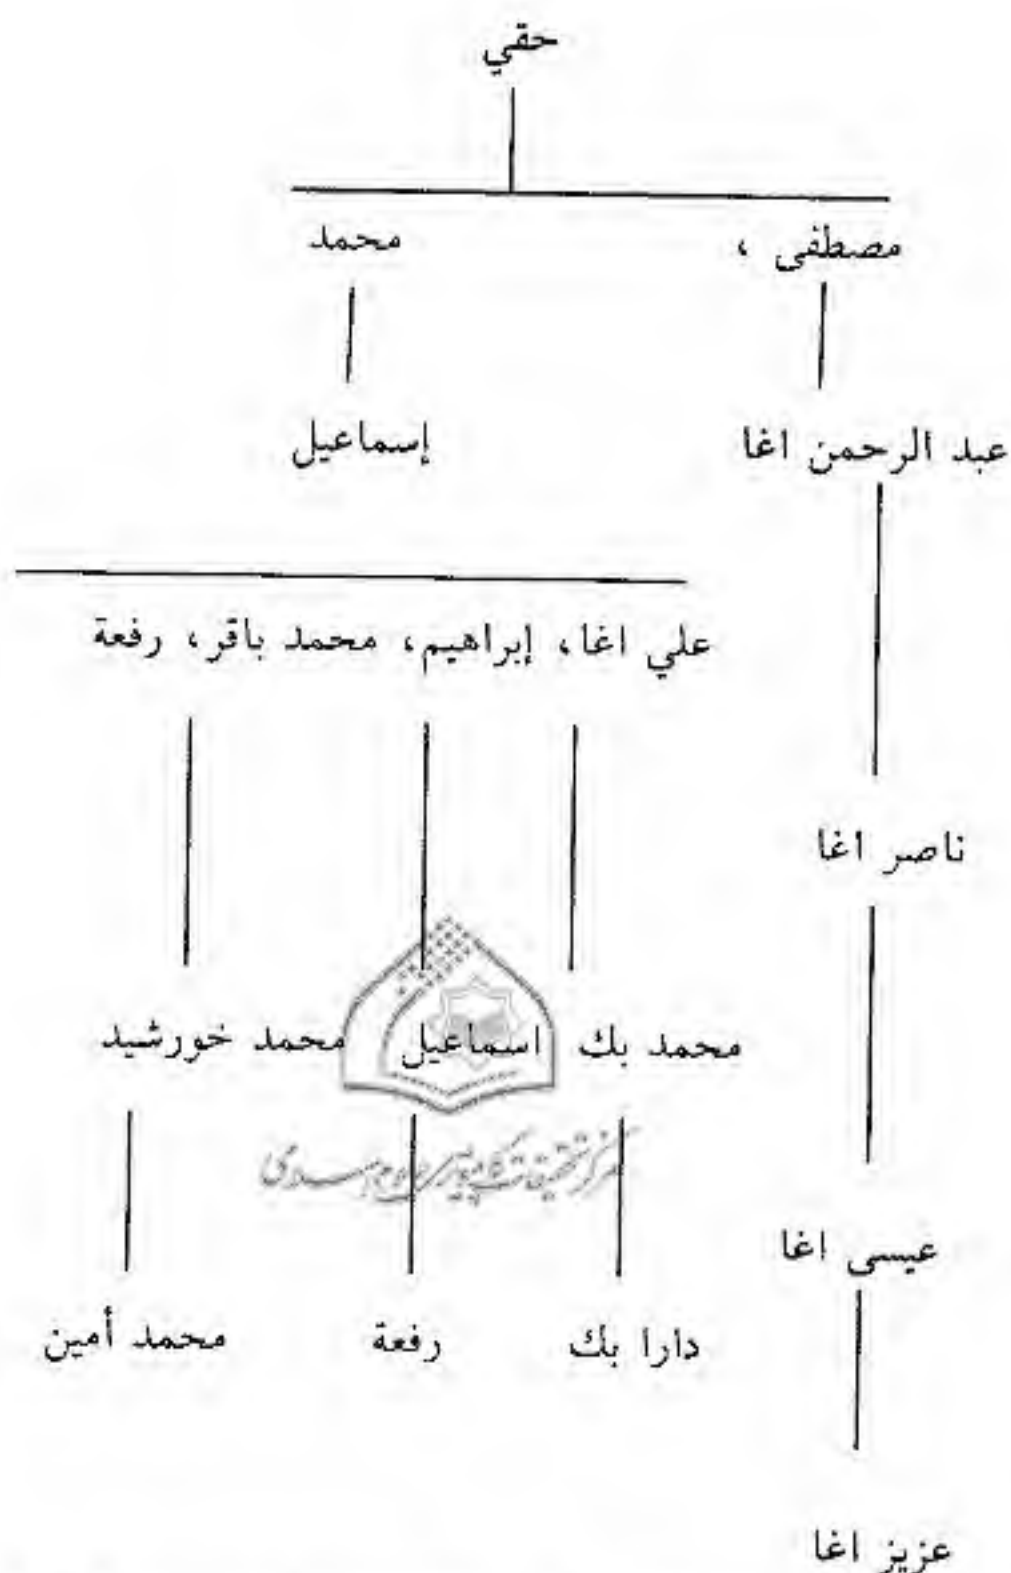 حقي
مصطفى ، محمد
عبد الرحمن اغا إسماعيل
علي اغا، إبراهيم، محمد باقر، رفعة
ناصر اغا
محمد بك اسماعيل محمد خورشيد
مركز تحقیقات کامپیوتری علوم اسلامی
عيسى اغا
دارا بك رفعة محمد أمين
عزيز اغا